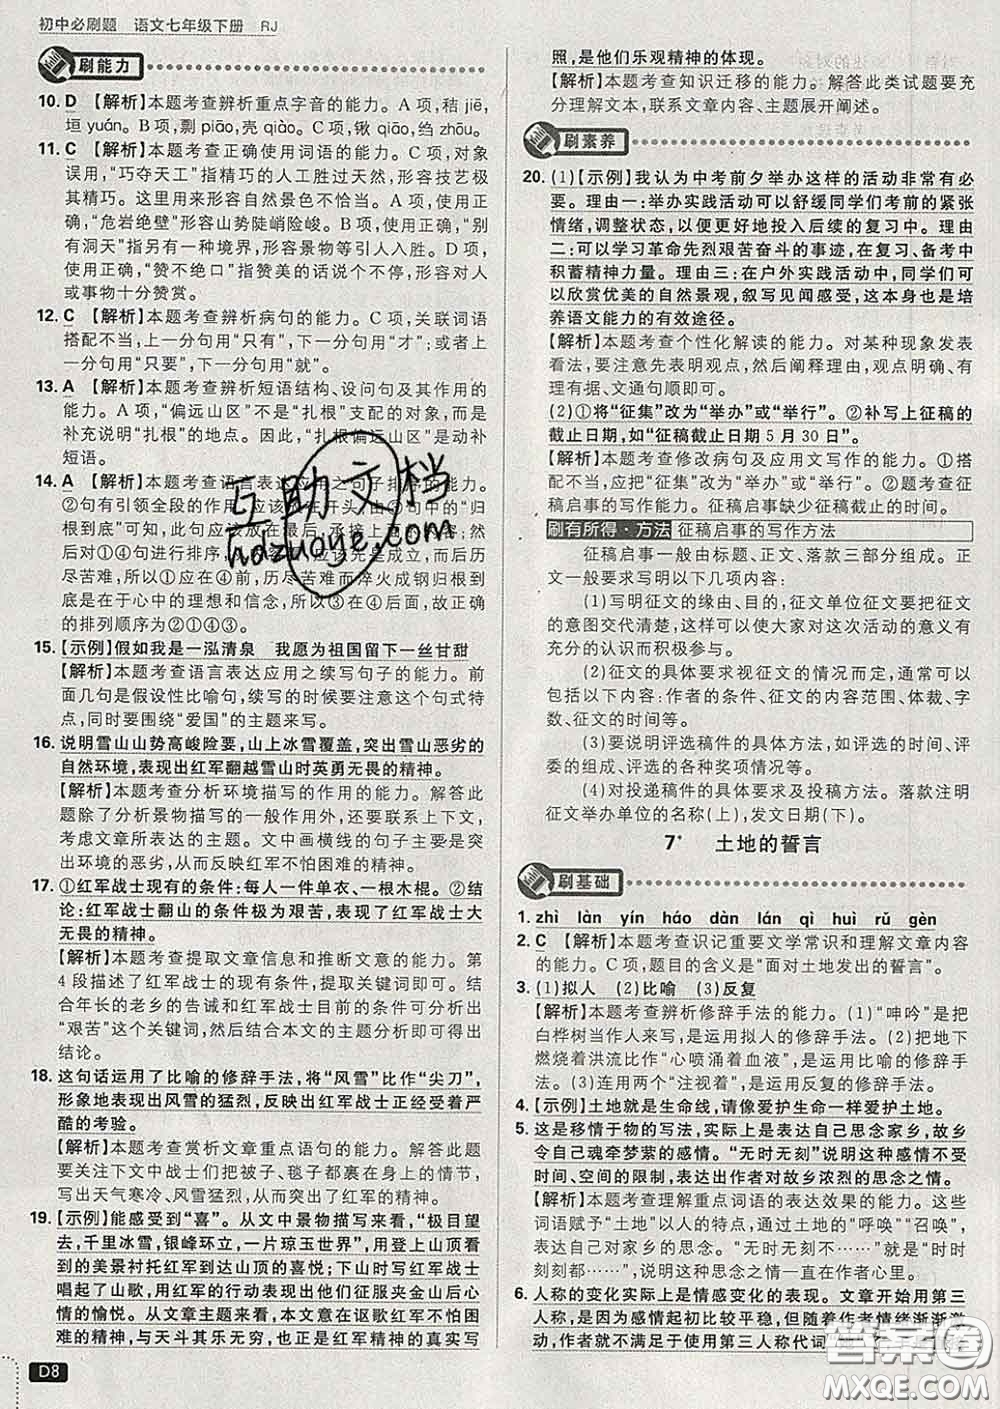 初中必刷题 语文七年级下册 RJ
刷能力
10. D 【解析】本题考查辨析重点字音的能力。A 项，秸 jiē，
垣 yuán。B 项，剽 piāo，壳 qiào。C 项，锹 qiāo，绉 zhōu。
11. C 【解析】本题考查正确使用词语的能力。C 项，对象
误用，“巧夺天工”指精巧的人工胜过天然，形容技艺极
其精巧。这里形容自然景色不恰当。A 项，使用正确，
“危岩绝壁”形容山势陡峭险峻。B 项，使用正确，“别
有洞天”指另有一种境界，形容景物等引人入胜。D 项，
使用正确，“赞不绝口”指赞美的话说个不停，形容对人
或事物十分赞赏。
12. C 【解析】本题考查辨析病句的能力。C 项，关联词语
搭配不当，上一分句用“只有”，下一分句用“才”；或者上
一分句用“只要”，下一分句用“就”。
13. A 【解析】本题考查辨析短语结构、设问句及其作用的
能力。A 项，“偏远山区”不是“扎根”支配的对象，而是
补充说明“扎根”的地点。因此，“扎根偏远山区”是动补
短语。
14. A 【解析】本题考查语言表达应用之句子排序的能力。
②句有引领全段的作用，应该放在开头；由④句中的“归
根到底”可知，此句应该放在最后，承接总结上文。因此
①③④句进行排序，应该是①在④前；历尽艰辛应该是历
历尽苦难，所以①应在④前，历尽苦难而淬火成钢归根到
底是在于心中的理想和信念，所以③在④后面，故正确
的排列顺序为②①④③。
15. 【示例】假如我是一泓清泉 我愿为祖国留下一丝甘甜
【解析】本题考查语言表达应用之续写句子的能力。
前面几句是假设性比喻句，续写的时候要注意这个句式特
点，同时要围绕“爱国”的主题来写。
16. 说明雪山山势高峻险要，山上冰雪覆盖，突出雪山恶劣的
自然环境，表现出红军翻越雪山时英勇无畏的精神。
【解析】本题考查分析环境描写的作用的能力。解答此
题除了分析景物描写的一般作用外，还要联系上下文，参
考文章所表达的主题。文中画横线的句子主要是为了
突出环境的恶劣，从而反映红军不怕困难的精神。
17. ①红军战士现有的条件：每人一件单衣、一根木棍。②结
论：红军战士翻山的条件极为艰苦，表现了红军战士大
无畏的精神。
【解析】本题考查提取文章信息和推断文意的能力。第
4 段描述了红军战士的现有条件，提取关键词即可。结
合年长的老乡的告诫和红军战士目前的条件可分析出
“艰苦”这个关键词，然后结合本文的主题分析即可得出
结论。
18. 这句话运用了比喻的修辞手法，将“风雪”比作“尖刀”，
形象地表现出风雪的猛烈，反映出红军战士正经受着严
酷的考验。
【解析】本题考查赏析文章重点语句的能力。解答此题
要关注下文中战士们把被子、毯子都裹在身上的情节，
写出天气寒冷、风雪猛烈，突出红军战士经受的考验。
19. 【示例】能感受到“喜”。从文中景物描写来看，“极目望
去，千里冰雪，银峰环立，一片琼玉世界”，用登上山顶看到
的美景衬托红军到达山顶的喜悦；下山时写红军战士
唱起了山歌，用红军的行动表现他们征服夹金山后心
情的愉悦。从文章主题来看，本文意在讴歌红军不怕困
难的精神，与天斗其乐无穷，也是红军精神的真实写
照，是他们乐观精神的体现。
【解析】本题考查知识迁移的能力。解答此类试题要充
分理解文本，联系文章内容、主题展开阐述。
刷素养
20. (1)【示例】我认为中考前夕举办这样的活动非常有必
要。理由一：举办实践活动可以舒缓同学们考前的紧张
情绪，调整状态，以便更好地投入后续的复习中。理由
二：可以学习革命先烈艰苦奋斗的事迹，在复习、备考中
积蓄精神力量。理由三：在户外实践活动中，同学们可
以欣赏优美的自然景观，叙写见闻感受，这本身也是培
养语文能力的有效途径。
【解析】本题考查个性化解读的能力。对某种现象发表
看法，要注意先表明观点，然后阐释理由，观点明确、有
理有据、文通句顺即可。
(2)①将“征集”改为“举办”或“举行”。②补写上征稿的
截止日期，如“征稿截止日期 5 月 30 日”。
【解析】本题考查修改病句及应用文写作的能力。①搭
配不当，应把“征集”改为“举办”或“举行”。②考查征稿
启事的写作能力。征稿启事缺少征稿截止的时间。
刷有所得·方法 征稿启事的写作方法
征稿启事一般由标题、正文、落款三部分组成。正
文一般要求写明以下几项内容：
(1)写明征文的缘由、目的，征文单位征文要把征文
的意图交代清楚，这样可以使大家对这次活动的意义有
充分的认识而积极参与。
(2)征文的具体要求视征文的情况而定，通常可以
包括以下内容：作者的条件、征文的内容范围、体裁、字
数、征文的时间等。
(3)要说明评选稿件的具体方法，如评选的时间、评
委的组成、评选的各种奖项情况等。
(4)对投递稿件的具体要求及投稿方法。落款注明
征文举办单位的名称(上)，发文日期(下)。
7* 土地的誓言
刷基础
1. zhì làn yín háo dàn lán qì huì rǔ gèn
2. C 【解析】本题考查识记重要文学常识和理解文章内容
的能力。C 项，题目的含义是“面对土地发出的誓言”。
3. (1)拟人 (2)比喻 (3)反复
【解析】本题考查辨析修辞手法的能力。(1)“呻吟”是把
白桦树当作人来写，是运用拟人的修辞手法。(2)把地下
燃烧着洪流比作“心喷涌着血液”，是运用比喻的修辞手
法。(3)连用两个“注视着”，是运用反复的修辞手法。
4. 【示例】土地就是生命线，请像爱护生命一样爱护土地。
5. 这是移情于物的写法，实际上是表达自己思念家乡，故乡
令自己魂牵梦萦的感情。“无时无刻”说明这种感情不受
时间、空间的限制，表达出作者对故乡浓烈的思念之情。
【解析】本题考查理解重点词语的表达效果的能力。这些
词语赋予“土地”以人的特点，通过土地的“呼唤”“召唤”，
表达自己对家乡的思念。“无时无刻不……”就是“时时
刻刻都……”，说明这种思念之情一直在作者心里。
6. 人称的变化实际上是情感变化的表现。文章开始用第三
人称，是因为感情起初比较平稳，但随着作者情绪渐渐激
动，作者就不满足于使用第三人称代词
D8
互助文档
hdzuoye.com
答案圈
MXQE.COM